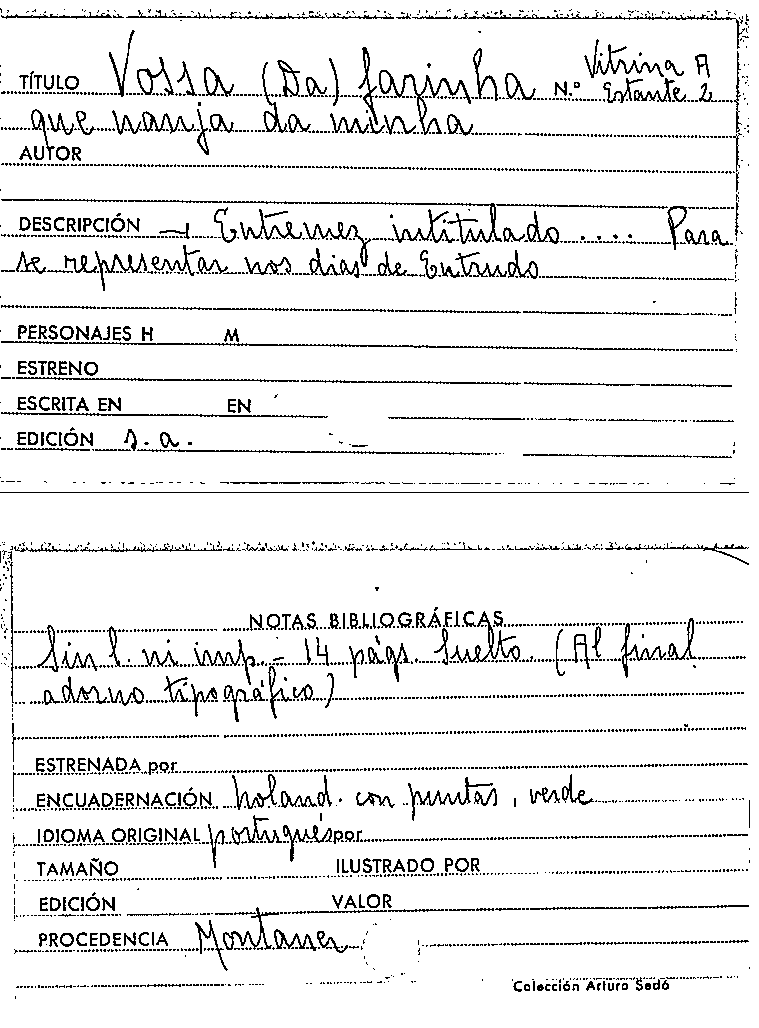 TÍTULO Vossa (Da) farinha N.º Vitrina A
Estante 2
que nanja da minha
AUTOR
DESCRIPCIÓN → Entremez intitulado .... Para
se representar nos dias de Entrudo
PERSONAJES H M
ESTRENO
ESCRITA EN EN
EDICIÓN s.a.
NOTAS BIBLIOGRÁFICAS
Sin l. ni imp. - 14 págs. Suelto. (Al final
adorno tipográfico)
ESTRENADA por
ENCUADERNACIÓN holand. con puntas, verde
IDIOMA ORIGINAL portugués por
TAMAÑO ILUSTRADO POR
EDICIÓN VALOR
PROCEDENCIA Montaner
Colección Arturo Sedó